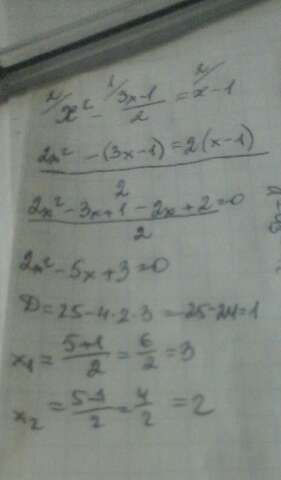 2/ x² - 1/ (3x-1)/2 = 2/ x-1
(2x² - (3x-1) = 2(x-1))/2
(2x² - 3x + 1 - 2x + 2)/2 = 0
2x² - 5x + 3 = 0
D = 25 - 4 · 2 · 3 = 25 - 24 = 1
x₁ = (5+1)/2 = 6/2 = 3
x₂ = (5-1)/2 = 4/2 = 2